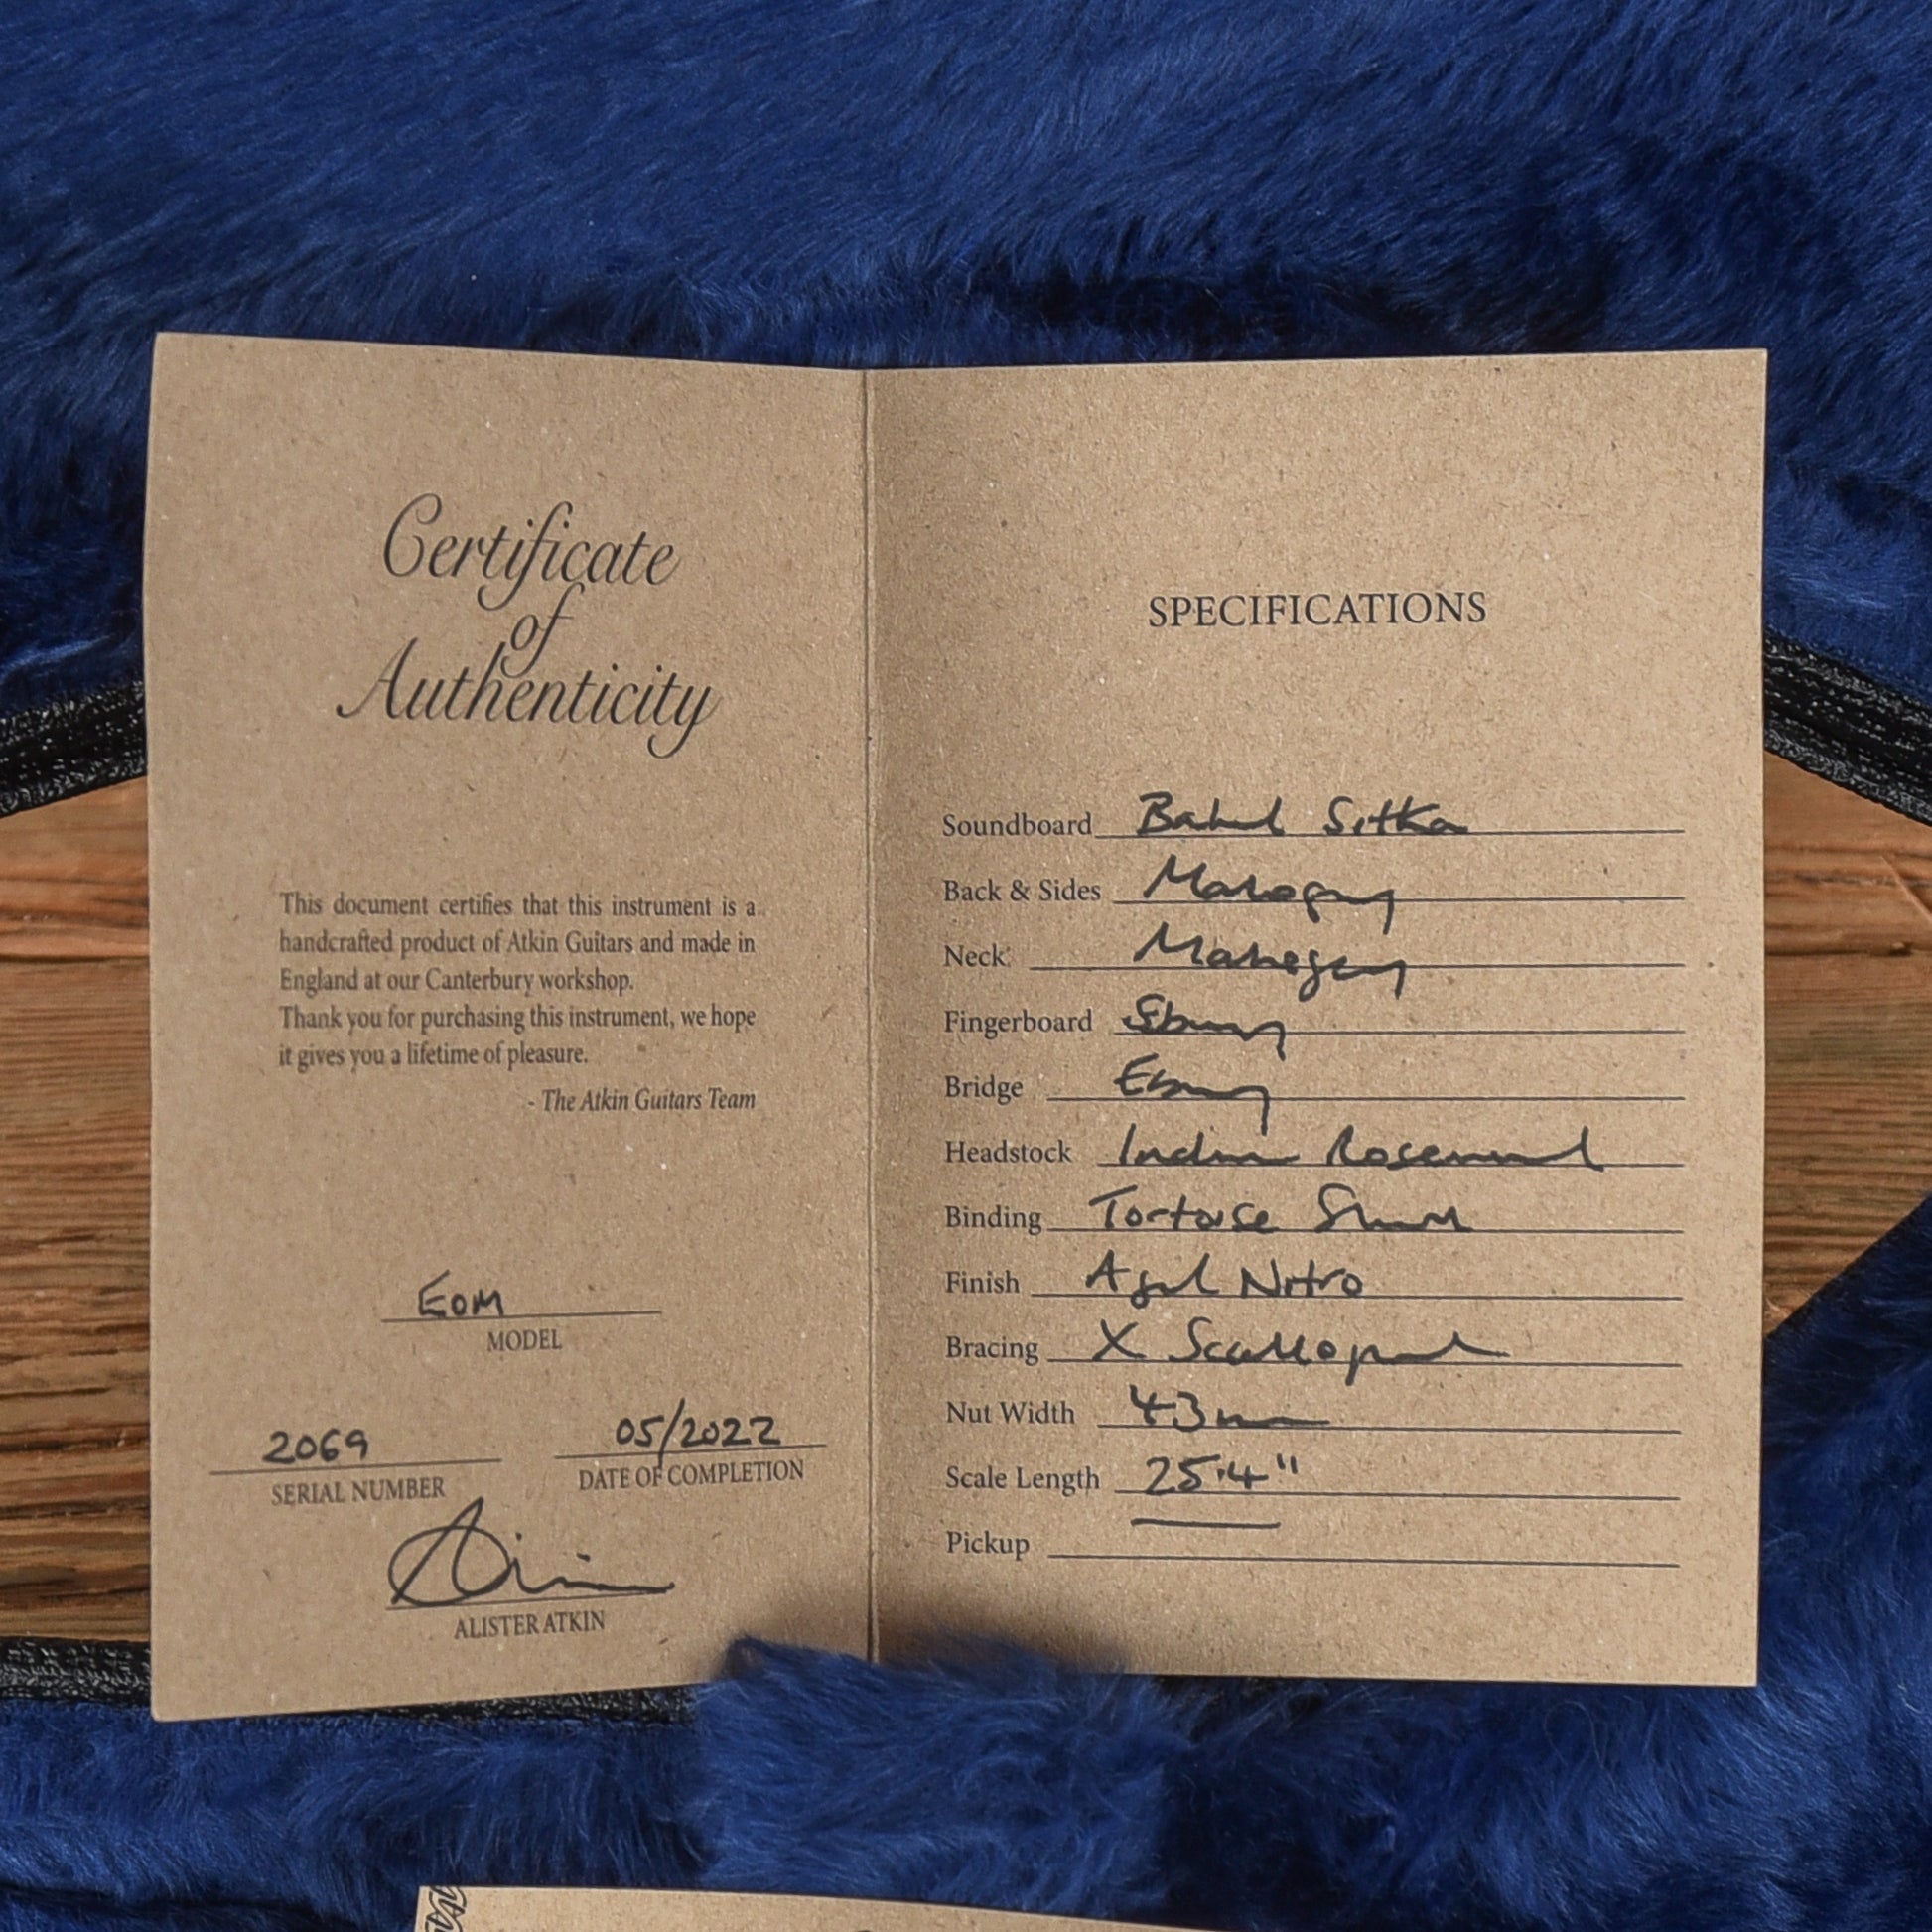 Certificate
of
Authenticity
This document certifies that this instrument is a
handcrafted product of Atkin Guitars and made in
England at our Canterbury workshop.
Thank you for purchasing this instrument, we hope
it gives you a lifetime of pleasure.
- The Atkin Guitars Team
EOM
MODEL
2069
SERIAL NUMBER
05/2022
DATE OF COMPLETION
ALISTER ATKIN
SPECIFICATIONS
Soundboard Baked Sitka
Back & Sides Mahogany
Neck Mahogany
Fingerboard Ebony
Bridge Ebony
Headstock Indian Rosewood
Binding Tortoise Shell
Finish Aged Nitro
Bracing X Scalloped
Nut Width 43mm
Scale Length 25.4"
Pickup —